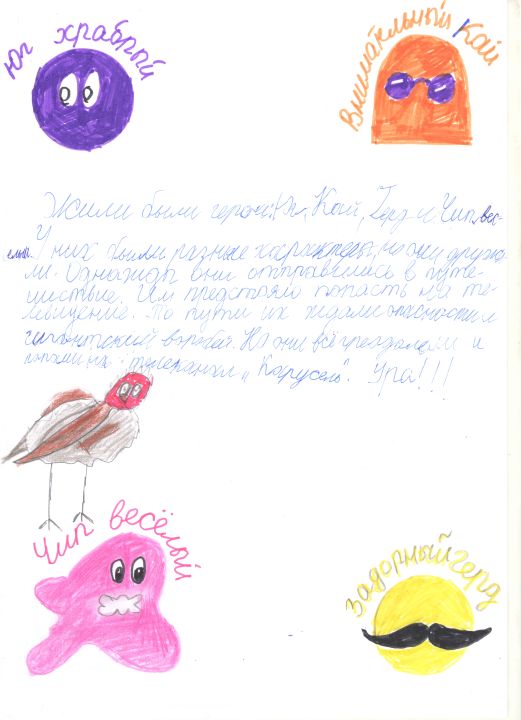 Юг храбрый
Внимательный Кай
Жили были герои: Юг, Кай, Герд и Чип вес-
ёлый. У них были разные характеры, но они дружи-
ли. Однажды они отправились в путе-
шествие. Им предстояло попасть на те-
левидение. По пути их ждали опасности и
гигантский воробей. Но они всё преодолели и
попали на телеканал „Карусель". Ура!!!
Чип весёлый
Задорный герд